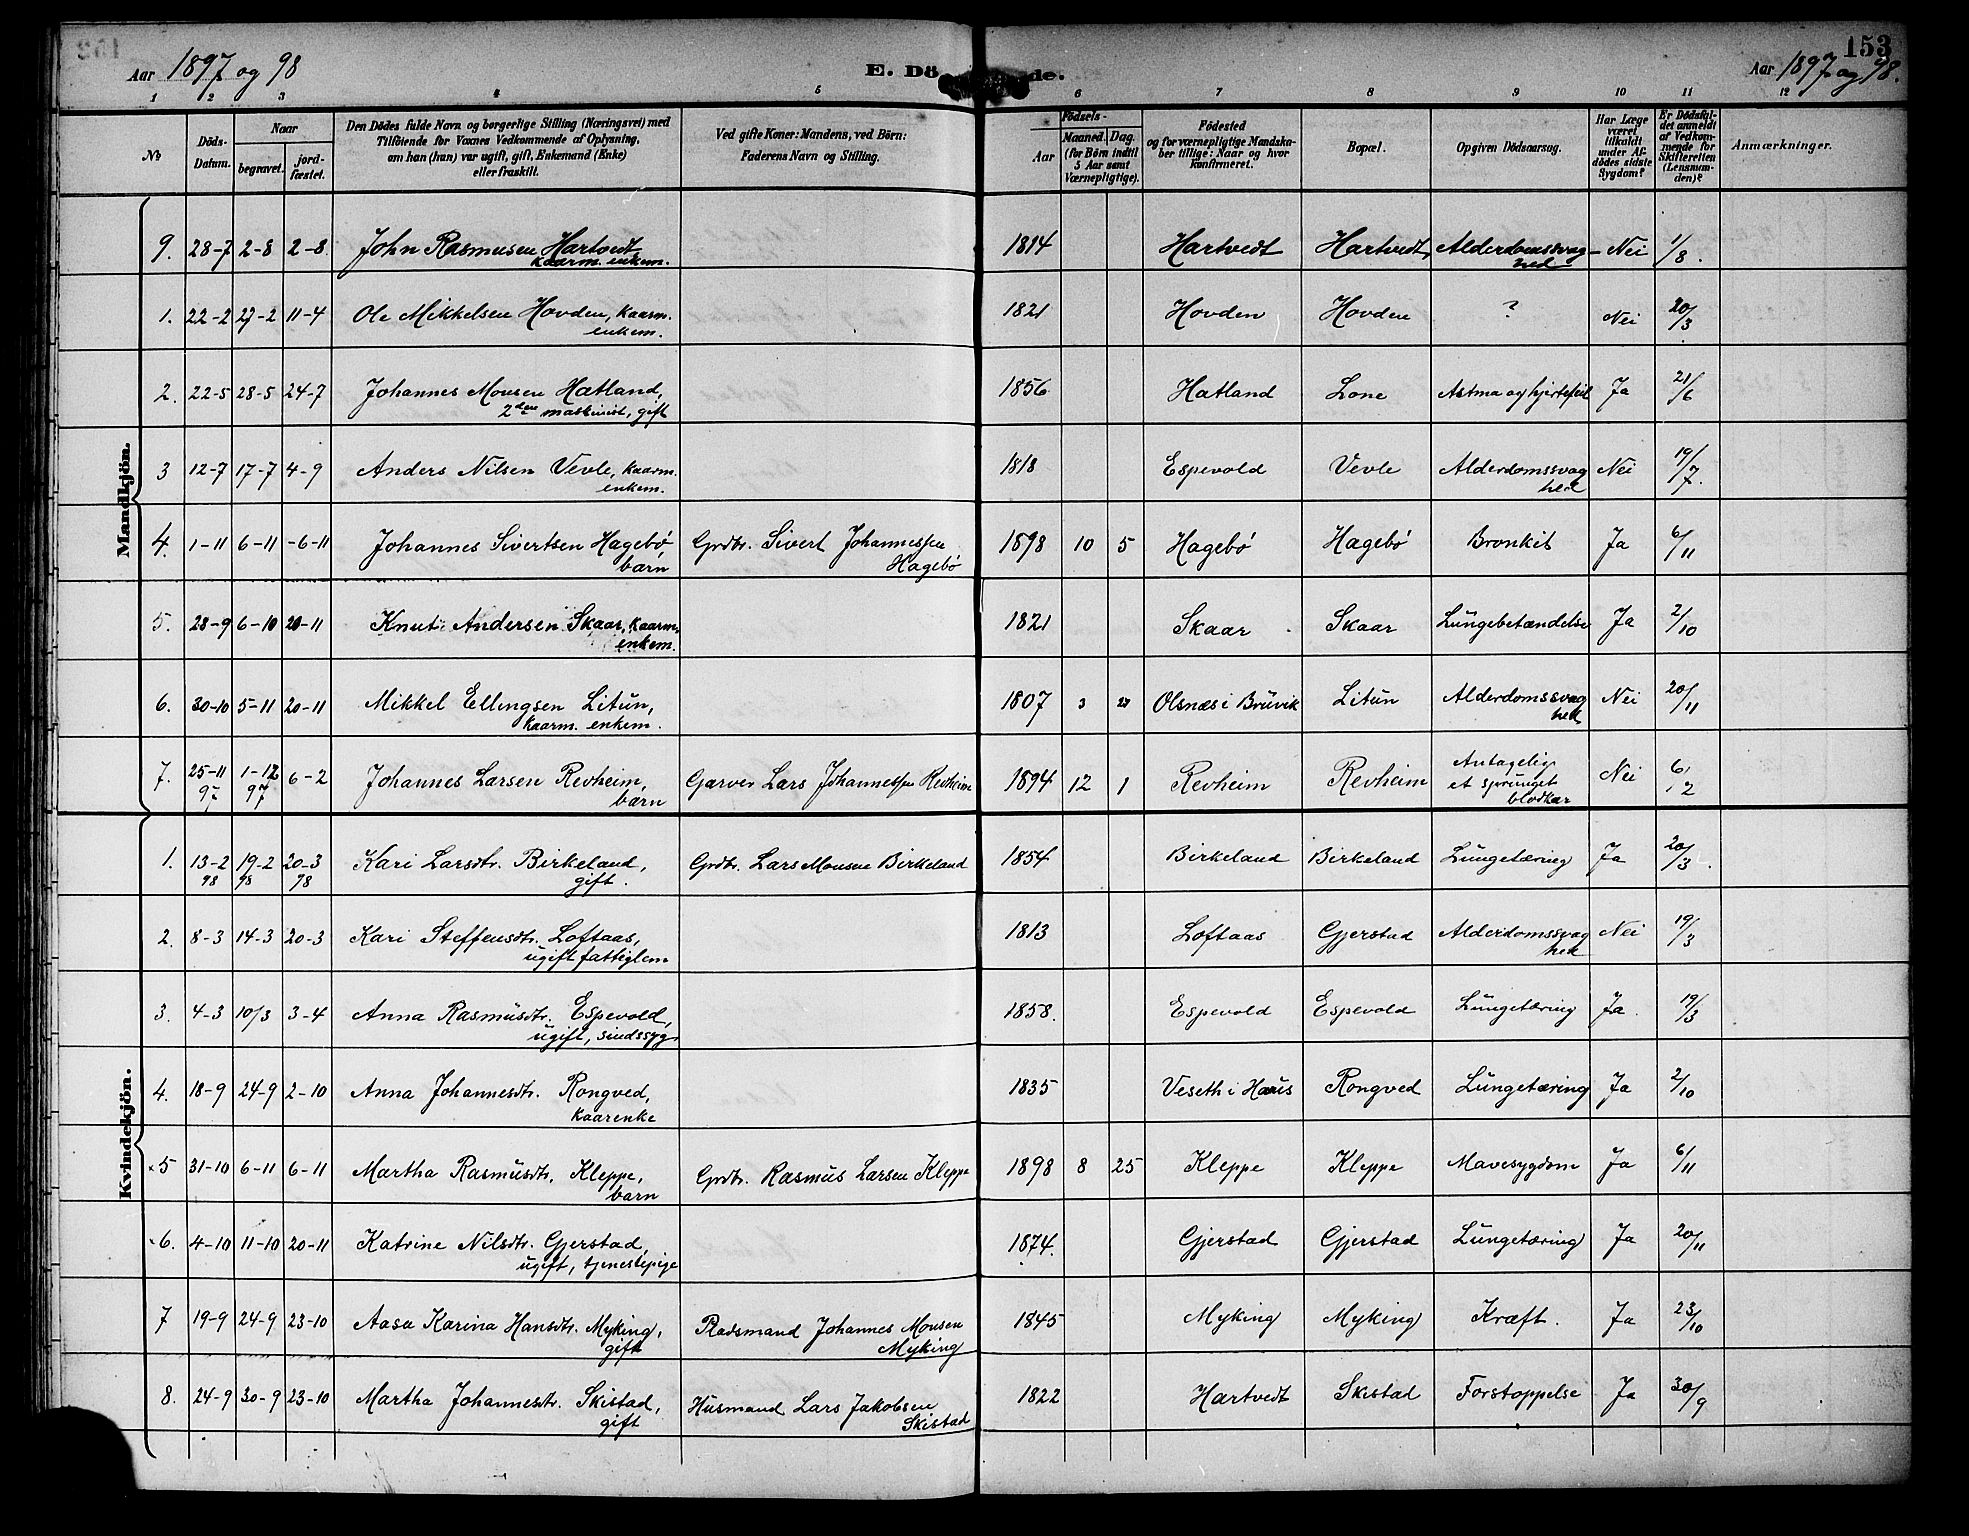 Aar 1897 og 98
E. Dö de.
153
Aar 1897 og 98.
1 2 3 4 5 6 7 8 9 10 11 12
No
Döds-Datum.
Naar
begravet.
jord-fæstet.
Den Dödes fulde Navn og borgerlige Stilling (Næringsvei) med
Tilföiende for Voxnes Vedkommende af Oplysning,
om han (hun) var ugift, gift, Enkemand (Enke)
eller fraskilt.
Ved gifte Koner: Mandens, ved Börn:
Faderens Navn og Stilling.
Födsels-
Aar
Maaned. Dag.
(for Börn indtil
5 Aar samt
Værnepligtige).
Födested
og for værnepligtige Mandska-
ber tillige: Naar og hvor
konfirmeret.
Bopæl.
Opgiven Dödsaarsag.
Har Læge
været
tilkaldt
under Af-
dödes sidste
Sygdom?
Er Dödsfal-
det anmeldt
af Vedkom-
mende for
Skifteretten
(Lensman-
den)?
Anmærkninger.
Mandkjön.
9. 28-7 2-8 2-8 John Rasmusen Hartvedt, 1814 Hartvedt Hartvedt, Alderdomssvag- Nei 1/8.
kaarm. enkem. hed
1. 22-2 27-2 11-4 Ole Mikkelsen Hovden, kaarm. 1821 Hovden Hovden ? Nei 20/3
enkem.
2. 22-5 28-5 24-7 Johannes Monsen Hatland, 1856 Hatland Lone Astma og hjertefeil Ja 21/6
2den maskinist, gift
3 12-7 17-7 4-9 Anders Nilsen Vevle, kaarm. 1818 Espevold Vevle Alderdomssvag Nei 19/7.
enkem. hed
4. 1-11 6-11 -6-11 Johannes Sivertsen Hagebø, Grdbr. Sivert Johannessen 1898 10 5 Hagebø Hagebø Bronkit Ja 6/11
barn Hagebø
5. 28-9 6-10 20-11 Knut Andersen Skaar, kaarm. 1821 Skaar Skaar Lungebetændelse Ja 2/10
enkem.
6. 30-10 5-11 20-11 Mikkel Ellingsen Litun, 1807 3 27 Olsnæs i Bruvik Litun Alderdomssvag Nei 20/11
kaarm. enkem. hed
7. 25-11 97 1-12 97 6-2 Johannes Larsen Revheim, Garver Lars Johannessen Revheim 1894 12 1 Revheim Revheim Antagelig Nei 6/2
barn et sprunget
blodkar
Kvindekjön.
1. 13-2 98 19-2 98 20-3 98 Kari Larsdtr. Birkeland, Grdbr. Lars Monsen Birkeland 1854 Birkeland Birkeland Lungetæring Ja 20/3.
gift.
2. 8-3 14-3 20-3 Kari Steffensdtr. Loftaas, 1813 Loftaas Gjerstad Alderdomssvag Nei 19/3
ugift fattiglem hed
3. 4-3 10/3 3-4 Anna Rasmusdtr. Espevold, 1858. Espevold Espevold Lungetæring Ja. 19/3
ugift, sindssyg
4. 18-9 24-9 2-10 Anna Johannesdtr. Rongved, 1835 Veseth i Haus Rongved Lungetæring Ja 2/10
kaarenke
5 31-10 6-11 6-11 Martha Rasmusdtr. Kleppe, Grdbr. Rasmus Larsen Kleppe 1898 8 25 Kleppe Kleppe Mavesygdom Ja 6/11
barn
6. 4-10 11-10 20-11 Katrine Nilsdtr. Gjerstad, 1874. Gjerstad Gjerstad Lungetæring Ja 20/11
ugift, tjenestepige
7 19-9 24-9 23-10 Aasa Karina Hansdtr. Myking, Pladsmand Johannes Monsen 1845 Myking Myking Kræft. Ja 23/10
gift Myking
8. 24-9 30-9 23-10 Martha Johannesdtr. Skistad, Husmand Lars Jakobsen 1822 Hartvedt Skistad Forstoppelse Ja 30/9
gift Skistad